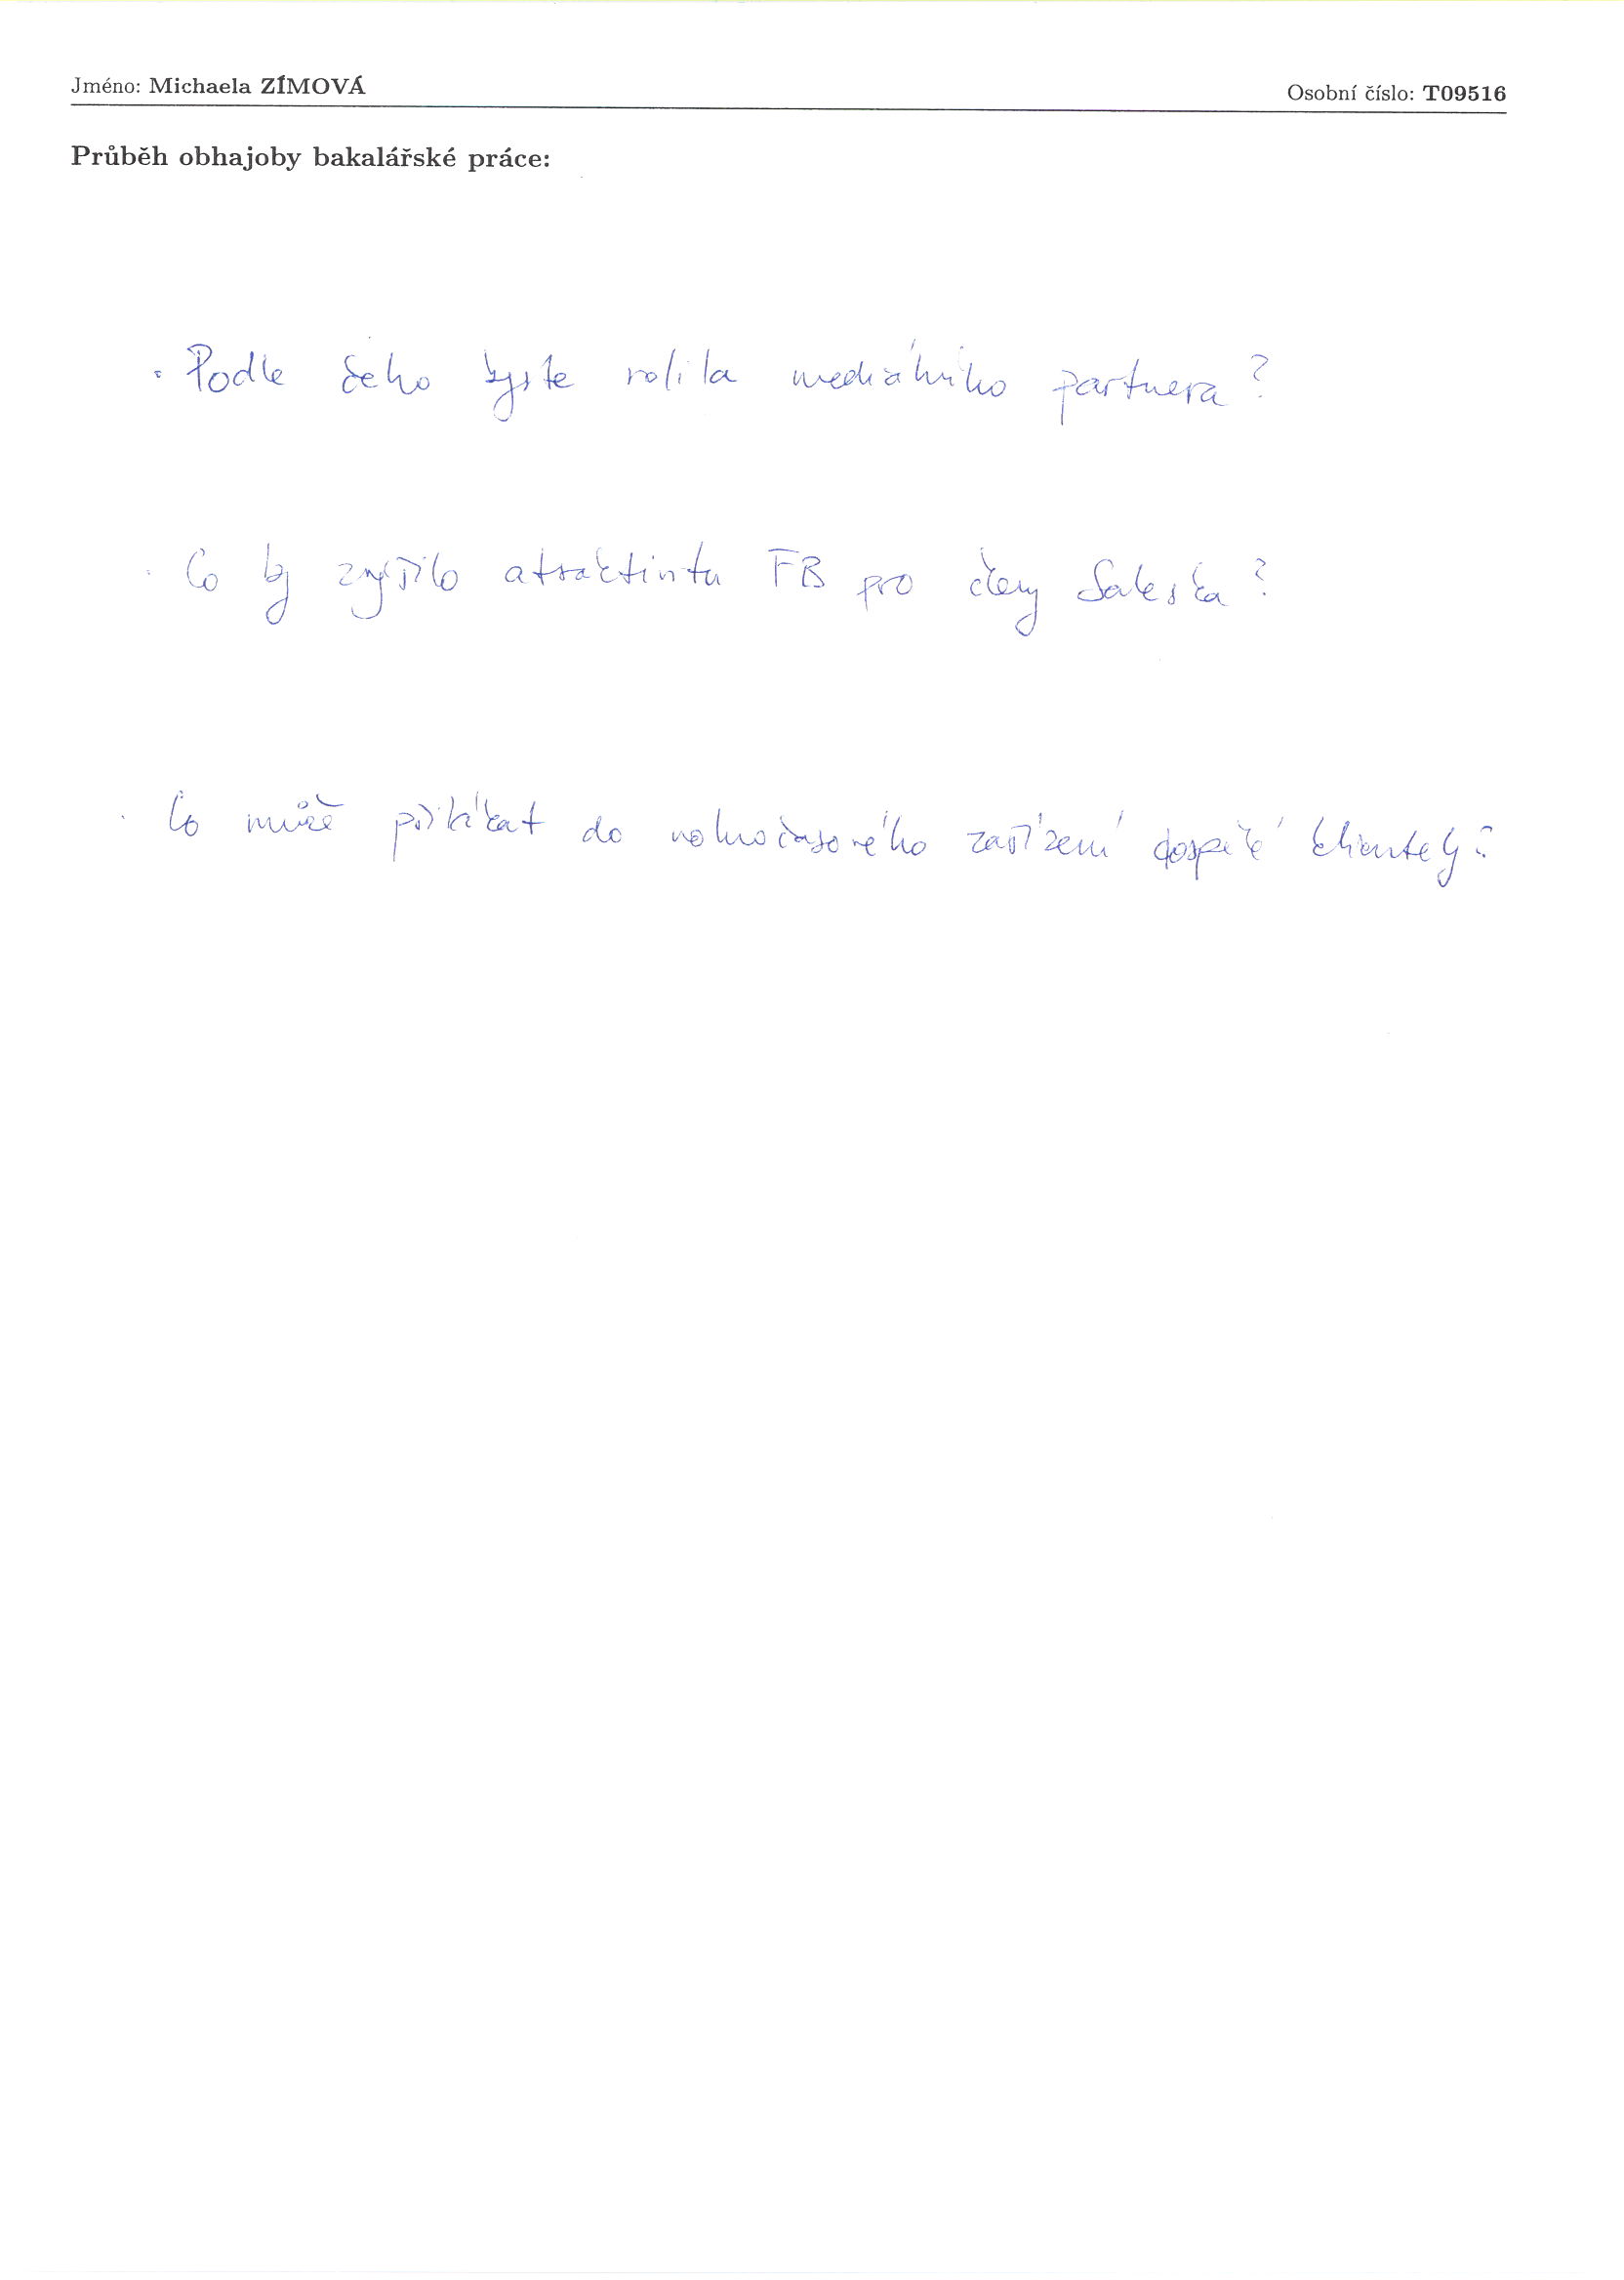 Jméno: Michaela ZÍMOVÁ
Osobní číslo: T09516
Průběh obhajoby bakalářské práce:
· Podle čeho byste volila mediálního partnera?
· Co by zvýšilo atraktivitu FB pro členy Saleska?
· Co může přilákat do volnočasového zařízení dospělé klienty?